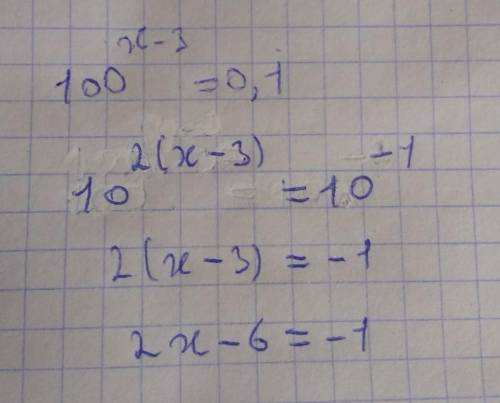 100^(x-3) = 0,1
10^(2(x-3)) = 10^(-1)
2(x-3) = -1
2x-6 = -1